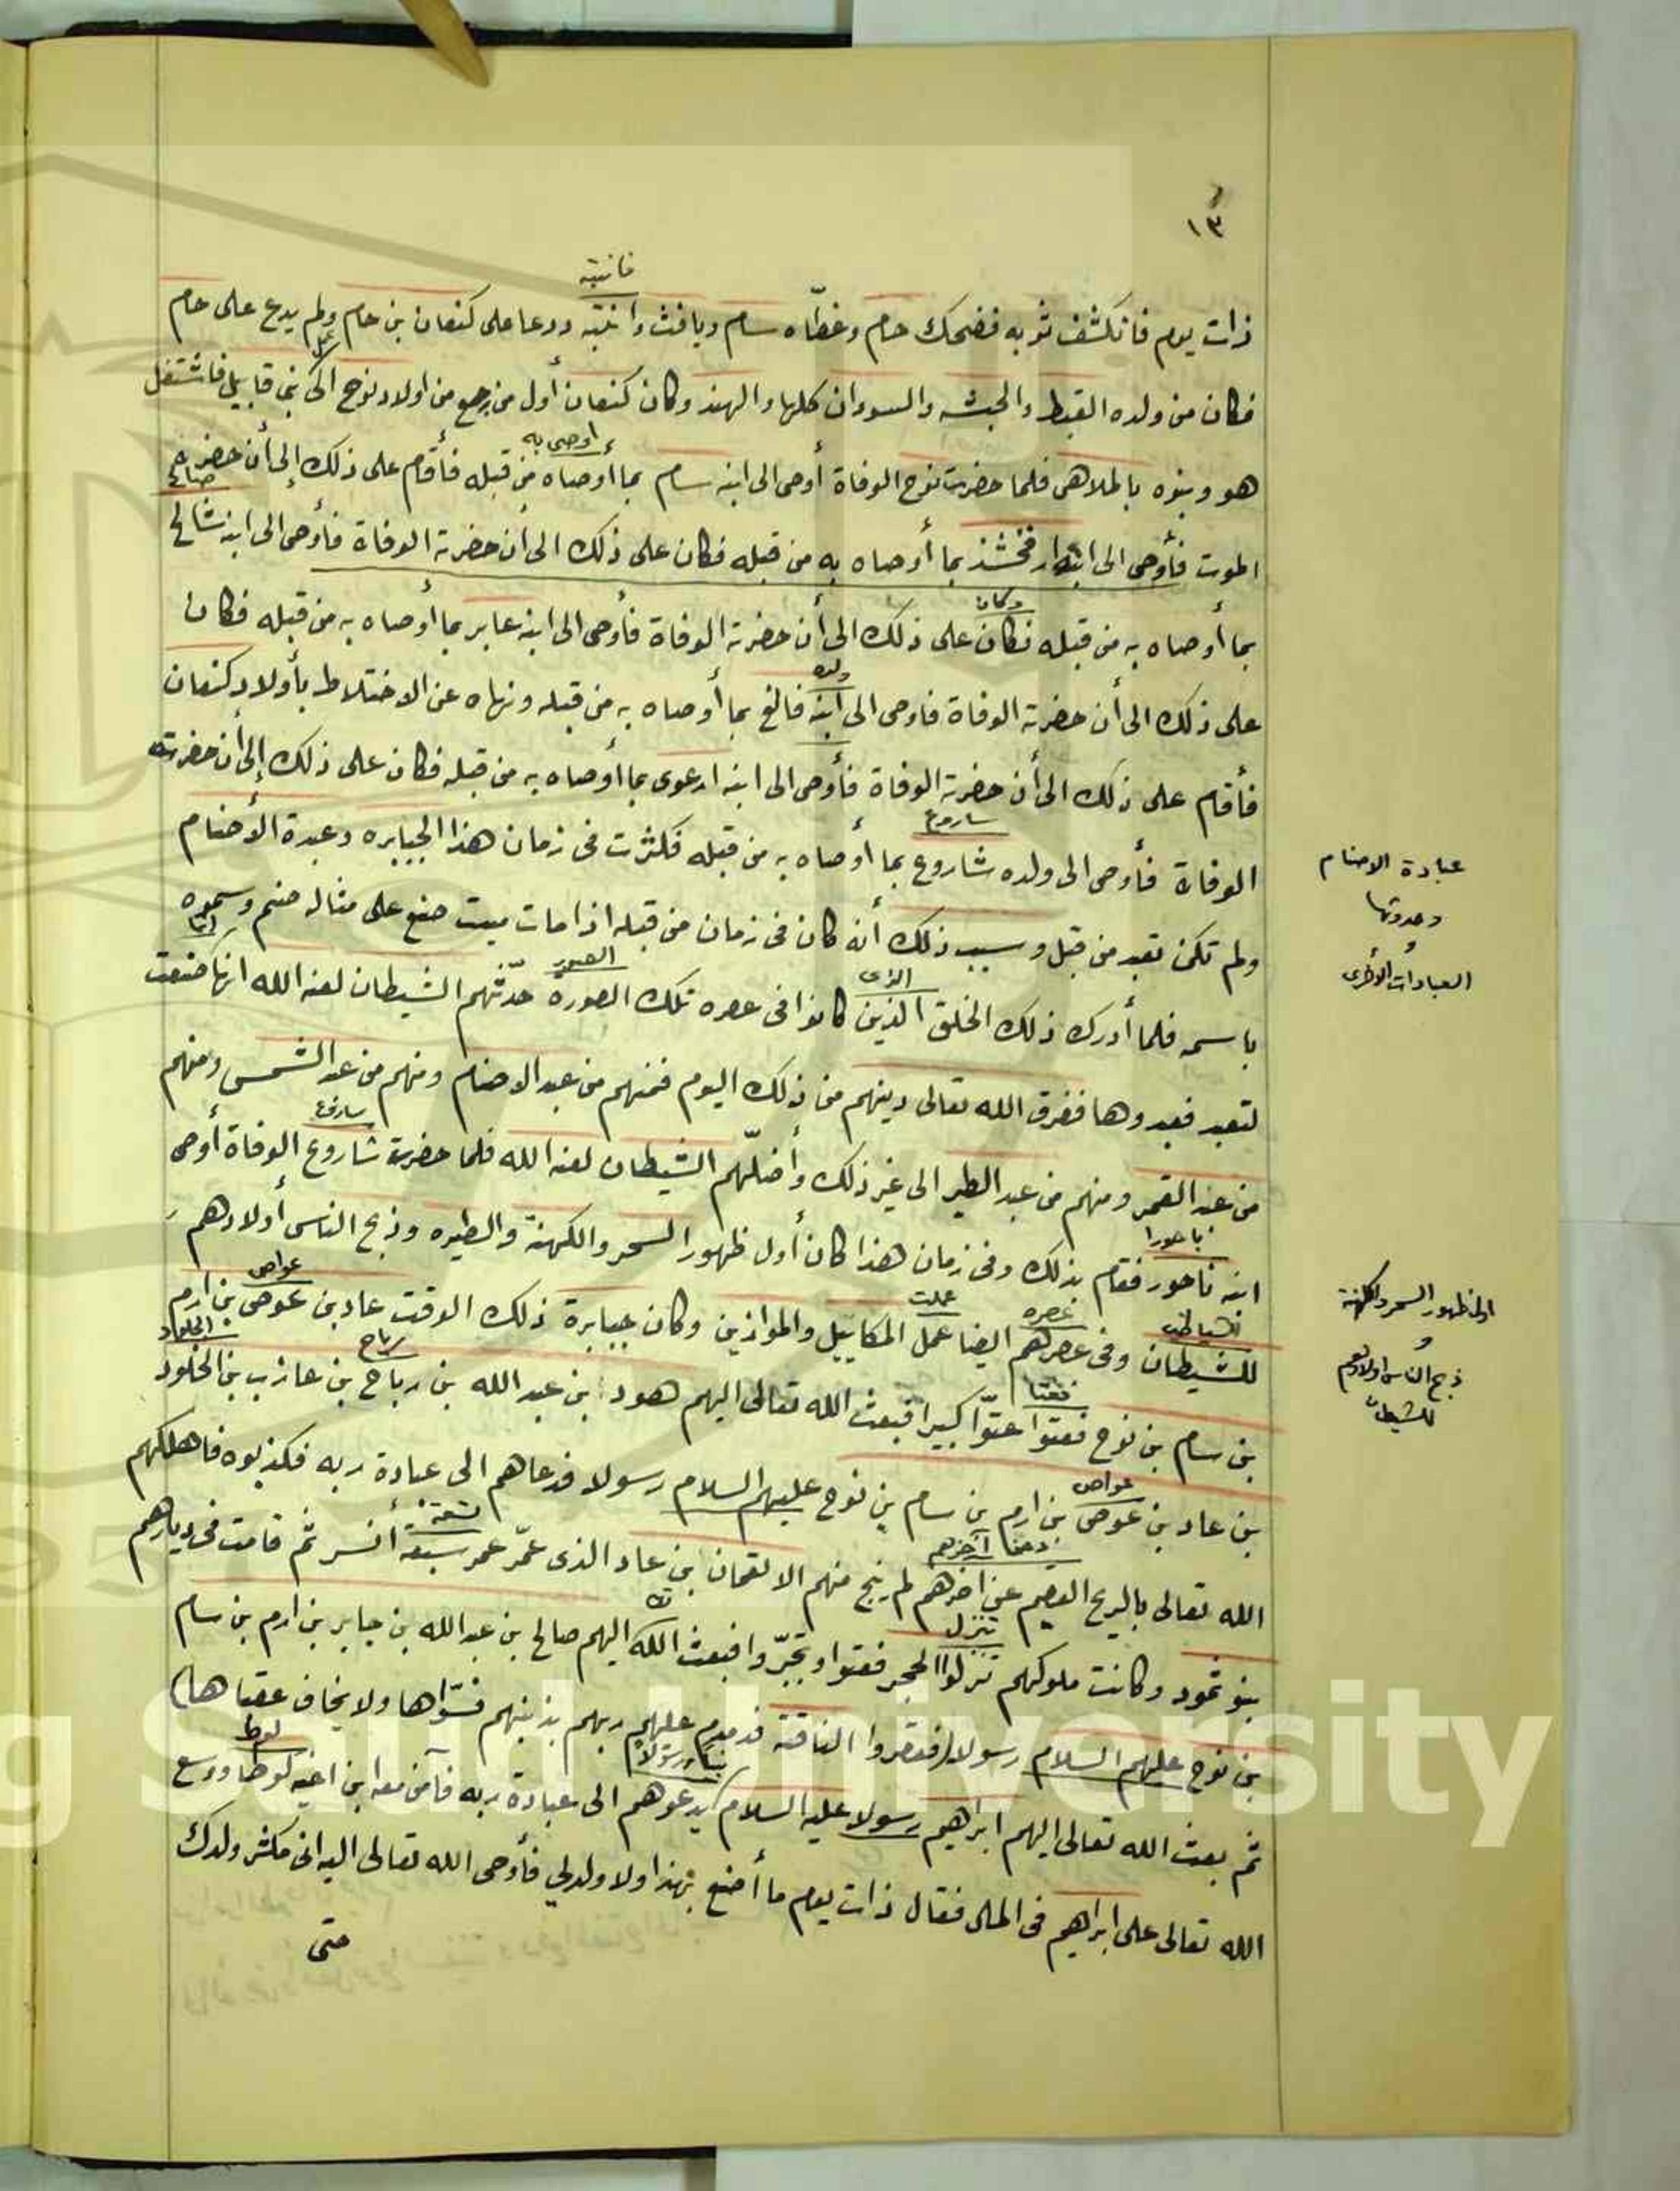 ١٣
فانتبه
ذات يوم فانكشف ثوبه فضحك حام وغطّاه سام ويافث وانتبه ودعا على كنعان بن حام ولم يدع على حام
فكان من ولده القبط والحبشه والسودان كلها والهند وكان كنعان أول من رجع من اولاد نوح الى بني قابيل فاشتغل
اوصى به
هو وبنوه بالملاهى فلما حضرت نوح الوفاة أوصى الى ابنه سام بما أوصاه من قبله فأقام على ذلك إلى أن حضر
الموت فأوصى الى ابنه ارفخشذ بما أوصاه به من قبله فكان على ذلك الى أن حضرته الوفاة فأوصى الى ابنه شالخ
وكان
بما أوصاه به من قبله فكان على ذلك الى أن حضرته الوفاة فأوصى الى ابنه عابر بما أوصاه به من قبله فكان
ولده
على ذلك الى أن حضرته الوفاة فاوصى الى ابنه فالغ بما أوصاه به من قبله ونهاه عن الاختلاط بأولاد كنعان
فأقام على ذلك الى أن حضرته الوفاة فأوصى الى ابنه ارعوى بما أوصاه به من قبله فكان على ذلك إلى أن حضرته
ساروع
الوفاة فأوصى الى ولده شاروع بما أوصاه به من قبله فكثرت فى زمان هذا الجبابره وعبدة الأصنام
ولم تكن تعبد من قبل وسبب ذلك أنه كان فى زمان من قبله اذا مات ميت صنع على مثاله صنم وسموه
الذى
الصور
باسمه فلما أدرك ذلك الخلق الذين كانوا فى عصره تلك الصورة حدّثهم الشيطان لعنه الله انها صنعت
لتعبد فعبدوها ففرق الله تعالى دينهم من ذلك اليوم فمنهم من عبد الاصنام ومنهم من عبد الشمس ومنهم
ساروع
من عبد القمر ومنهم من عبد الطير الى غير ذلك وأضلّهم الشيطان لعنه الله فلما حضرت شاروع الوفاة أوصى
ناحورا
ابنه ناحور فقام بذلك وفى زمان هذا كان أول ظهور السحر والكهنة والطيره وذبح الناس أولادهم
عصره
عملت
عواص
للشيطان وفى عصرهم ايضا عمل المكاييل والموازين وكان جبابرة ذلك الوقت عاد بن عوص بن ارم
فعتا
رياح
الجلود
بن سام بن نوح فعتوا عتوّا كبيرا فبعث الله تعالى اليهم هود بن عبد الله بن رباح بن عازب بن الخلود
عواص
بن عاد بن عوص بن ارم بن سام بن نوح عليهم السلام رسولا فدعاهم الى عبادة ربه فكذبوه فاهلكهم
آخرهم
الله تعالى بالريح العقيم عن اخرهم لم ينج منهم الا لقمان بن عاد الذى عمّر عمر سبعة أنسر ثم قامت فى ديارهم
تنزل
بنو ثمود وكانت ملوكهم تنزلوا الحجر فعتوا وتجبّروا فبعث الله اليهم صالح بن عبد الله بن جابر بن ارم بن سام
بن نوح عليهم السلام رسولا (فعقروا الناقة فدمدم عليهم ربهم بذنبهم فسوّاها ولا يخاف عقباها)
نبيا ورسولا
لوط
ثم بعث الله تعالى اليهم ابراهيم رسولا عليه السلام يدعوهم الى عبادة ربه فآمن معه ابن اخيه لوطا ووسع
الله تعالى على ابراهيم فى المال فقال ذات يوم ما أصنع بهذا ولا ولد لي فأوحى الله تعالى اليه انى مكثر ولدك
حتى
عبادة الاصنام
وحدوثها
و
العبادات الأخرى
اول ظهور السحر والكهنة
و
ذبح الناس اولادهم
للشيطان
King Saud University